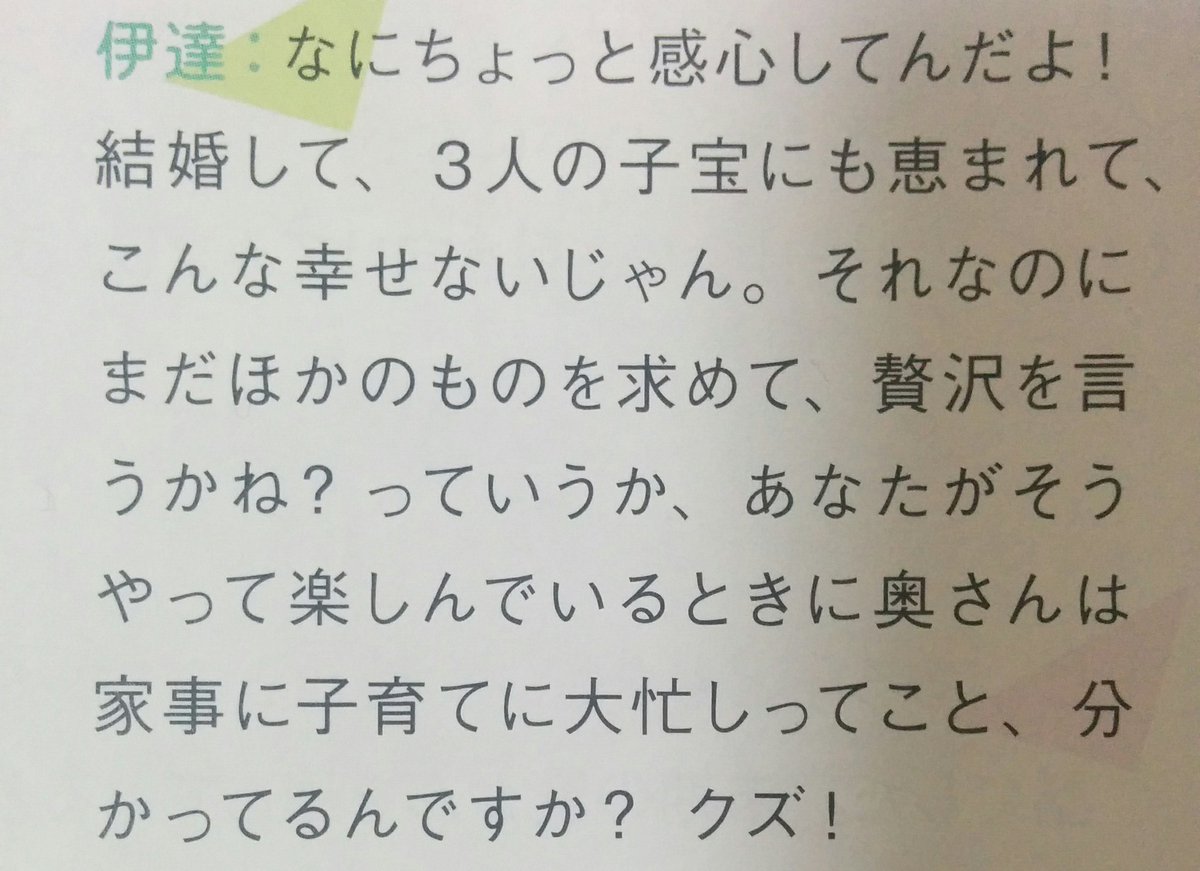 伊達：なにちょっと感心してんだよ！
結婚して、３人の子宝にも恵まれて、
こんな幸せないじゃん。それなのに
まだほかのものを求めて、贅沢を言
うかね？っていうか、あなたがそう
やって楽しんでいるときに奥さんは
家事に子育てに大忙しってこと、分
かってるんですか？ クズ！